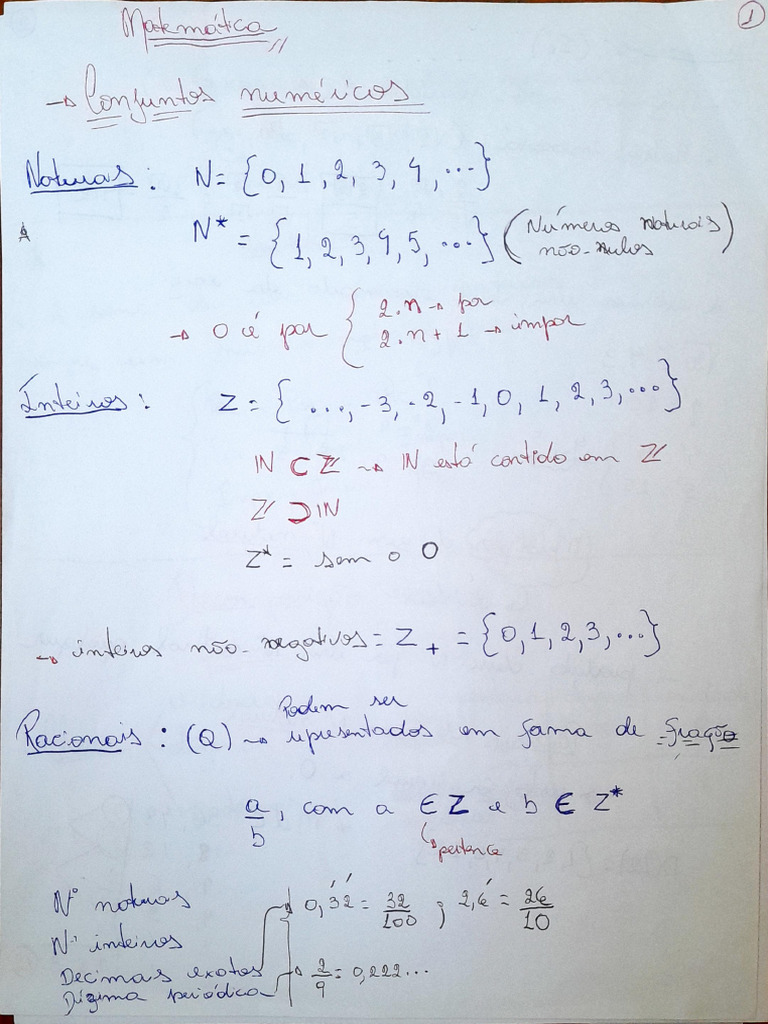 1
Matemática
→ Conjuntos numéricos
Naturais: N = {0, 1, 2, 3, 4, ...}
N* = {1, 2, 3, 4, 5, ...} (Números naturais não-nulos)
→ 0 é par { 2.n → par
2.n + 1 → ímpar
Inteiros: Z = {..., -3, -2, -1, 0, 1, 2, 3, ...}
ℕ ⊂ ℤ → ℕ está contido em ℤ
ℤ ⊃ ℕ
Z* = sem o 0
→ inteiros não-negativos = Z+ = {0, 1, 2, 3, ...}
Racionais: (Q) → Podem ser representados em forma de fração
a/b, com a ∈ Z e b ∈ Z*
↳ pertence
Nº naturais
Nº inteiros
Decimais exatos → 0,32 = 32/100 ; 2,6 = 26/10
Dízima periódica → 2/9 = 0,222...